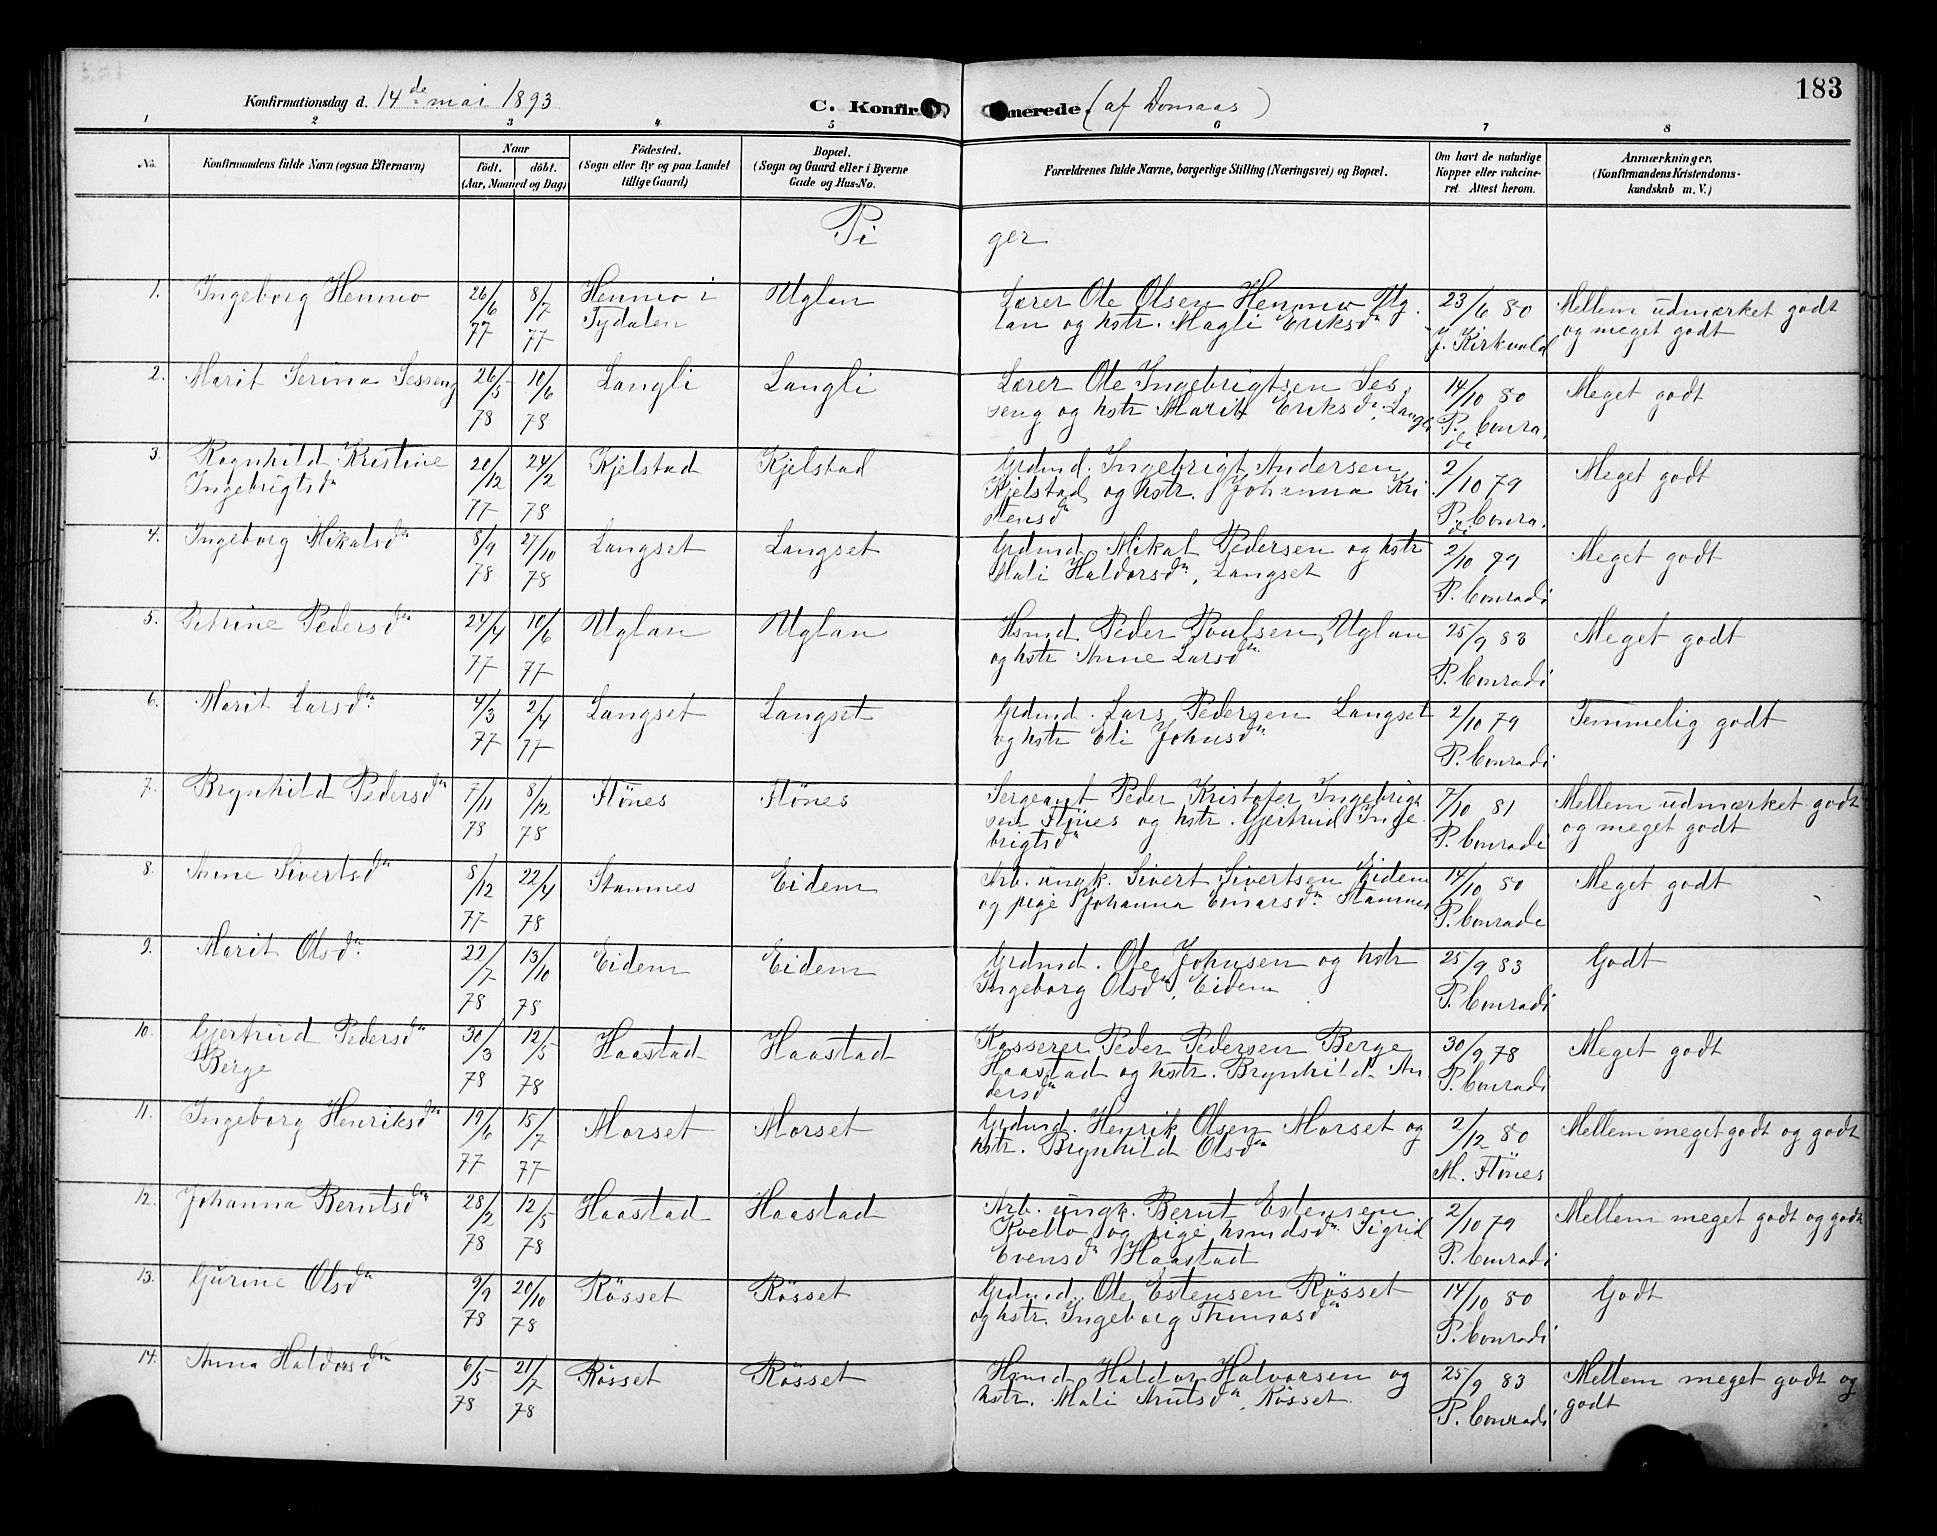 183
Konfirmationsdag d. 14de mai 1893
C. Konfirmerede. (af Domaas)
1 2 3 4 5 6 7 8
No.
Konfirmandens fulde Navn (ogsaa Efternavn)
Naar
födt. döbt.
(Aar, Maaned og Dag)
Födested.
(Sogn eller By og paa Landet
tillige Gaard)
Bopæl.
(Sogn og Gaard eller i Byerne
Gade og Hus-No.
Forældrenes fulde Navne, borgerlige Stilling (Næringsvei) og Bopæl.
Om havt de naturlige
Kopper eller vakcine-
ret. Attest herom.
Anmærkninger.
(Konfirmandens Kristendoms-
kundskab m. V.)
Piger
1. Ingeborg Henmo
26/6 77
8/7 77
Henmo i
Tydalen
Uglan
Lærer Ole Olsen Henmo Ug
lan og hstr. Magli Eriksdtr
23/6 80
J. Kirkvold
Mellem udmærket godt
og meget godt
2. Marit Serina Sesseng
26/5 78
10/6 78
Langli
Langli
Lærer Ole Ingebrigtsen Ses.
seng og hstr Marit Eriksdtr, Langli
14/10 80
P. Conra.
di
Meget godt
3. Ragnhild Kristine
Ingebrigtsdtr
20/12 77
24/2 78
Kjelstad
Kjelstad
Grdmd. Ingebrigt Andersen
Kjelstad og hstr. Johanna Kri
stensdtr
2/10 79
P. Conra.
di
Meget godt
4. Ingeborg Mikalsdtr
8/9 78
27/10 78
Langset
Langset
Grdmd. Mikal Pedersen og hstr
Mali Haldorsdtr, Langset
2/10 79
P. Conradi
Meget godt
5. Petrine Pedersdtr
24/4 77
10/6 77
Uglan
Uglan
Hsmd. Peder Poulsen, Uglan
og hstr Anne Larsdtr
25/9 83
P. Conradi
Meget godt
6. Marit Larsdtr
4/3 77
2/4 77
Langset
Langset
Grdmd. Lars Pedersen Langset
og hstr Eli Johnsdtr
2/10 79
P. Conradi
Temmelig godt
7. Brynhild Pedersdtr
7/11 78
8/12 78
Flönes
Flönes
Sergeant Peder Kristofer Ingebrigt
sen Flönes og hstr. Gjertrud Inge
brigtsdtr
7/10 81
P. Conradi
Mellem udmærket godt
og meget godt
8. Anne Sivertsdtr
8/12 77
22/4 78
Stamnes
Eidem
Arb. ungk. Sivert Sivertsen Eidem
og pige Johanna Einarsdtr Stamnes
14/10 80
P. Conradi
Meget godt
9. Marit Olsdtr
22/7 78
13/10 78
Eidem
Eidem
Grdmd. Ole Johnsen og hstr
Ingeborg Olsdtr, Eidem
25/9 83
P. Conradi
Godt
10. Gjertrud Pedersdtr
Berge
30/3 78
12/5 78
Haastad
Haastad
Kasserer Peder Pedersen Berge
Haastad og hstr. Brynhild An
dersdtr
30/9 78
P. Conradi
Meget godt
11. Ingeborg Henriksdtr
19/6 77
15/7 77
Morset
Morset
Grdmd. Henrik Olsen Morset og
hstr. Brynhild Olsdtr
2/12 80
M. Flönes
Mellem meget godt og godt
12. Johanna Berntsdtr
28/2 78
12/5 78
Haastad
Haastad
Arb. ungk. Bernt Estensen
Kvello og pige hsmdsdtr Sigrid
Evensdtr Haastad
2/10 79
P. Conradi
Mellem meget godt og godt
13. Gurine Olsdtr
9/9 78
20/10 78
Rösset
Rösset
Grdmd. Ole Estensen Rösset
og hstr. Ingeborg Thomasdtr
14/10 80
P. Conradi
Godt
14. Anna Haldorsdtr
6/5 78
21/7 78
Rösset
Rösset
Hsmd. Haldor Halvorsen og
hstr. Mali Arntsdtr, Rösset
25/9 83
P. Conradi
Mellem meget godt og
godt